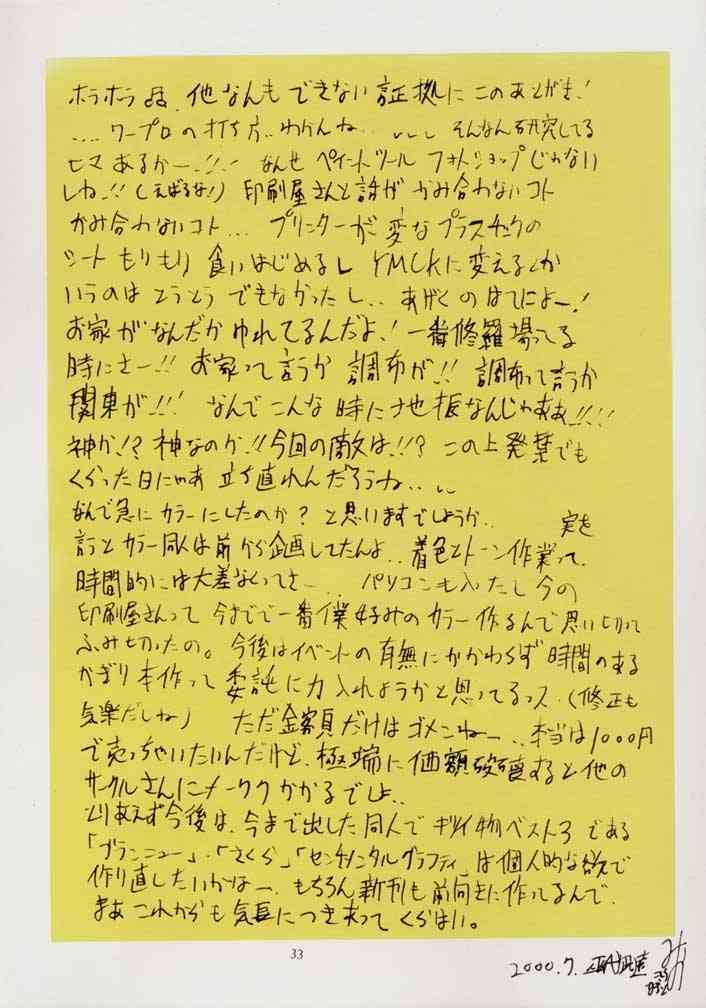 ホラホラ 他なんもできない証拠にこのあとがき!
....ワープロの打ち方..わかんね... そんなん研究してる
ヒマあるかー..!!! なんせ ペイントツール フォトショップじゃない
しね..!!(えばるな!) 印刷屋さんと話が かみ合わないコト
かみ合わないコト... プリンターが変なプラスチックの
シート もりもり食いはじめるし YMCKに変えるとか
いうのは とうとう できなかったし.. あげくのはてによー!
お家がなんだかゆれてるんだよ! 一番修羅場ってる
時にさー!! お家って言うか 調布が!! 調布って言うか
関東が!!! なんでこんな時に地振なんじゃああ!!!!
神か!? 神なのか!! 今回の敵は!!? この上発禁でも
くらった日にゃあ 立ち直れんだろうね...
なんで急にカラーにしたのか? と思いますでしょうか.. 実を
言うとカラー同人は前から企画してたんよ.. 着色とトーン作業って
時間的には大差なくってさ... パソコンも入ったし今の
印刷屋さんって 今までで一番僕好みのカラー作るんで思い切って
ふみ切ったの。今後はイベントの有無にかかわらず時間のある
かぎり本作って 委託に力入れようかと思ってるっス.(修正も
気楽だしね) ただ金額だけはゴメンねー..本当は1000円
で売っちゃいたいんだけど.極端に価額破壊すると他の
サークルさんにメーワクかかるでしょ..
とりあえず今後は、今まで出した同人でキツイ物ベスト3である
「ブランニュー」.「さくら」「センチメンタルグラフティ」は個人的な欲で
作り直したいかなー. もちろん新刊も前向きに作ってるんで.
まあこれからも気長につき走って くらはい。
33
2000.7.